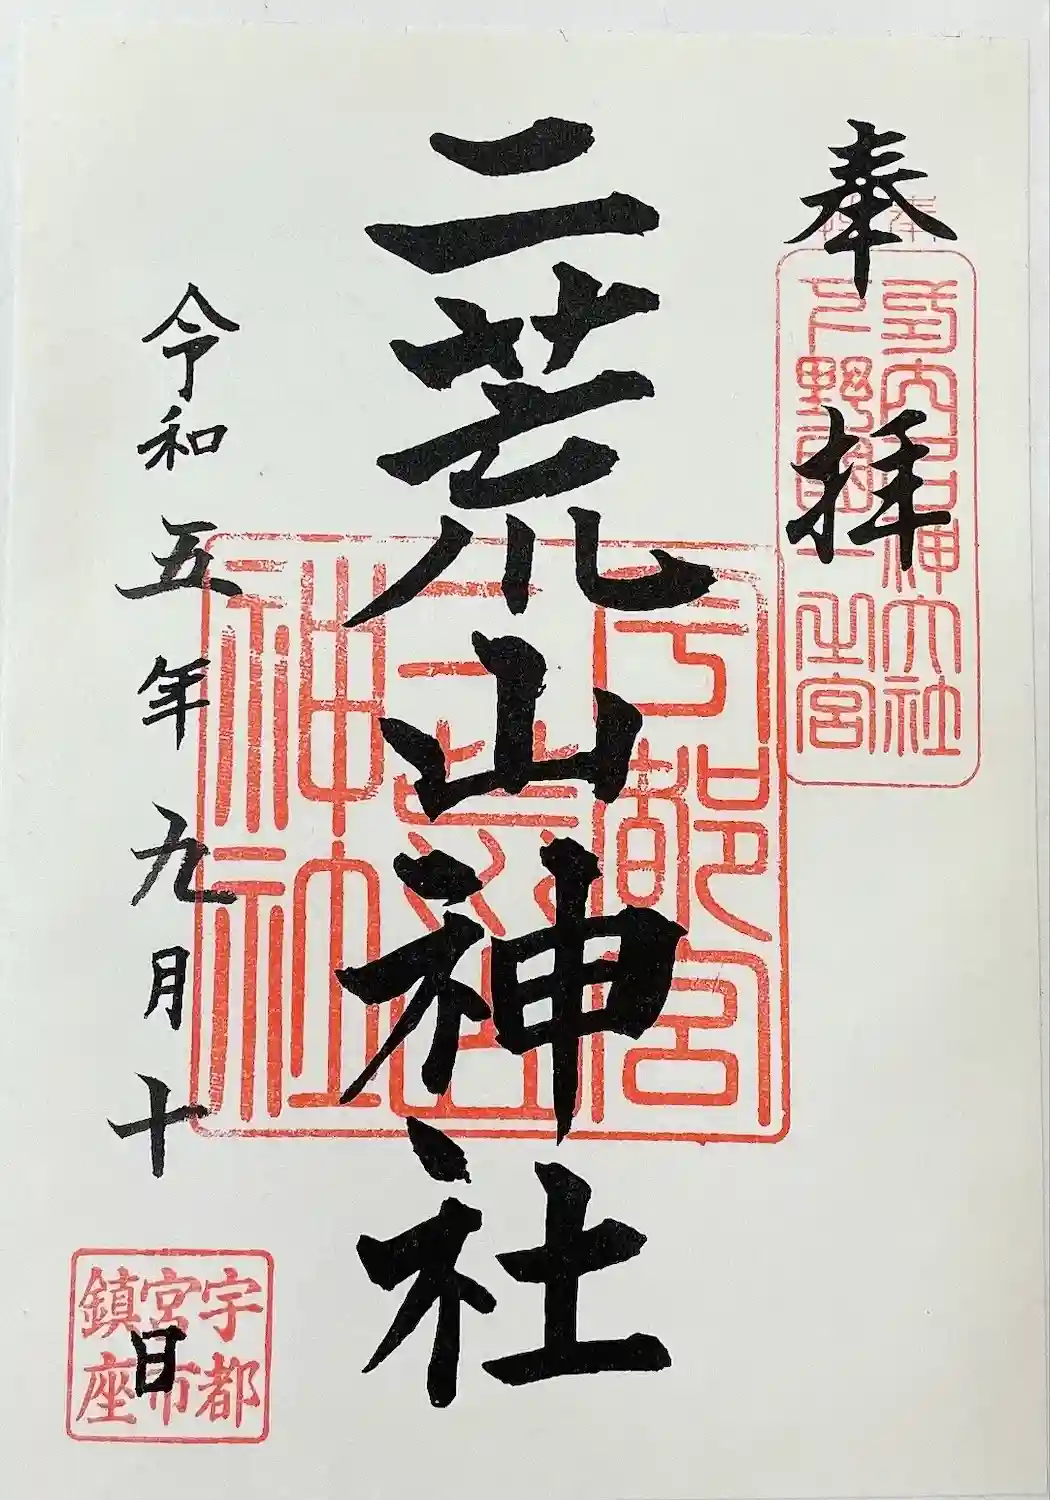 奉拝
式内名神大社
下野国一之宮
二荒山神社
宇都宮
二荒山
神社
令和五年九月十日
宇都
宮市
鎮座